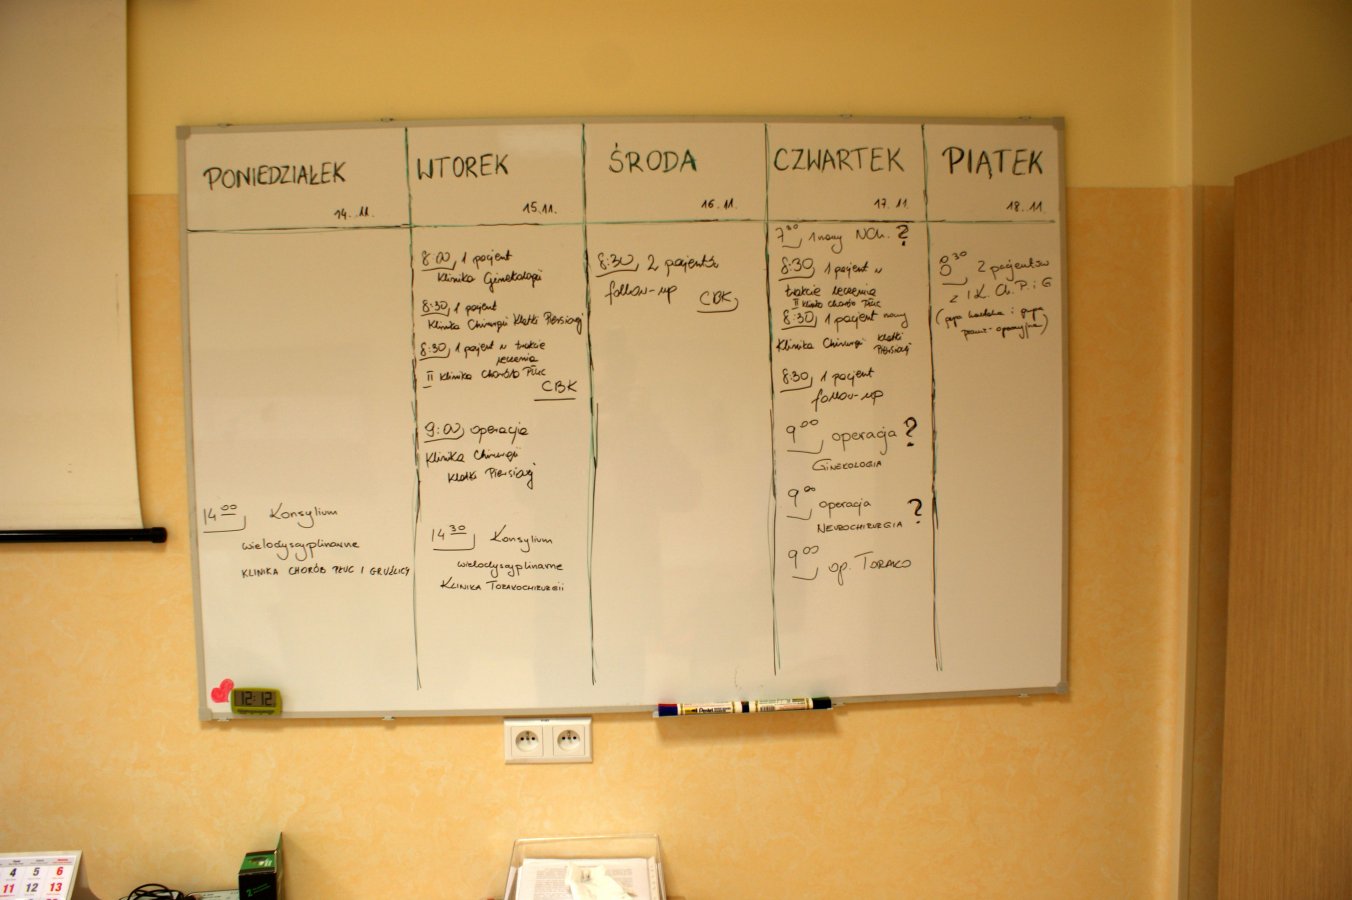 PONIEDZIAŁEK
14.11.
14 00 Konsylium
wielodyscyplinarne
KLINIKA CHORÓB PŁUC I GRUŹLICY
WTOREK
15.11.
8:00 1 pacjent
Klinika Ginekologii
8:30 1 pacjent
Klinika Chirurgii Klatki Piersiowej
8:30 1 pacjent w trakcie
leczenia
II Klinika Chorób Płuc
CBK
9:00 operacja
Klinika Chirurgii
Klatki Piersiowej
14 30 Konsylium
wielodyscyplinarne
KLINIKA TORAKOCHIRURGII
ŚRODA
16.11.
8:30 2 pacjentów
follow-up
CBK
CZWARTEK
17.11.
7 30 1 nowy NCh. ?
8:30 1 pacjent w
trakcie leczenia
II Klinika Chorób Płuc
8:30 1 pacjent nowy
Klinika Chirurgii Klatki
Piersiowej
8:30 1 pacjent
follow-up
9 00 operacja ?
GINEKOLOGIA
9 00 operacja ?
NEUROCHIRURGIA
9 00 op. TORAKO
PIĄTEK
18.11
8 30 2 pacjentów
z I K. Ch. P. i G
i grupa
12:12
4 5 6
11 12 13